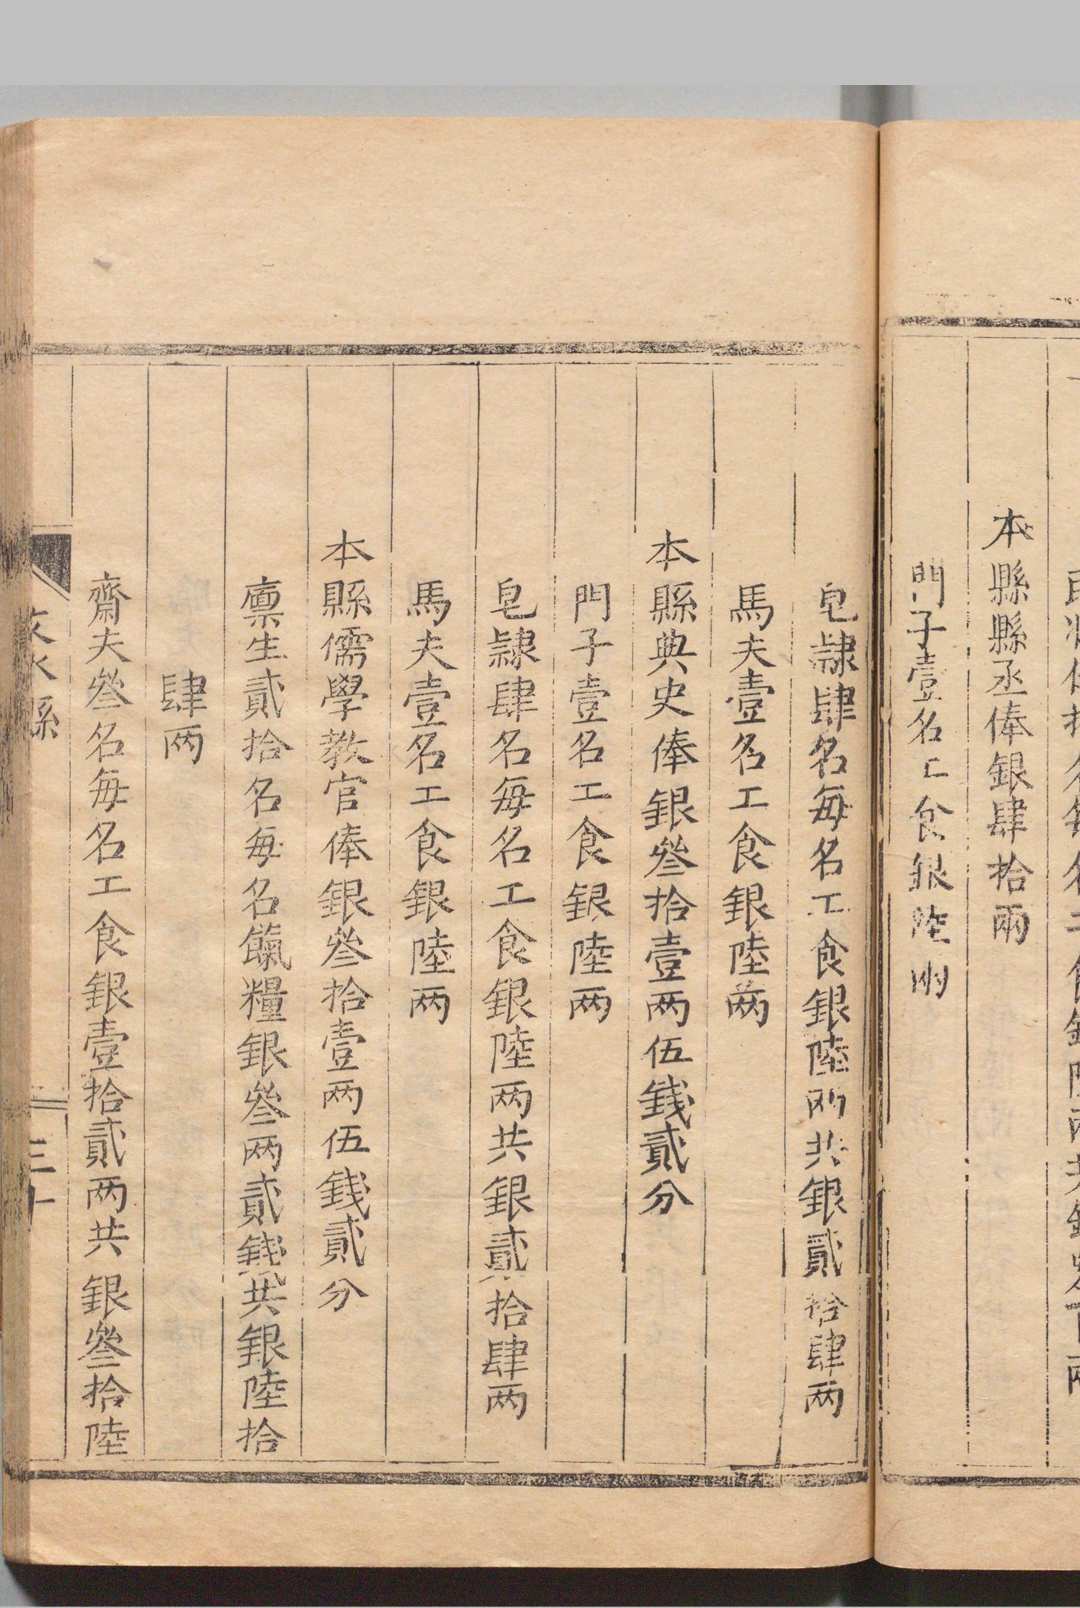 本縣縣丞俸銀肆拾兩
門子壹名工食銀陸兩
皂隷肆名每名工食銀陸两共銀貳拾肆两
馬夫壹名工食銀陸两
本縣典史俸銀叄拾壹两伍錢貳分
門子壹名工食銀陸两
皂隷肆名每名工食銀陸两共銀貳拾肆两
馬夫壹名工食銀陸两
本縣儒學教官俸銀叄拾壹两伍錢貳分
廪生貳拾名每名餼糧銀叄两貳錢共銀陸拾
肆两
齋夫叄名每名工食銀壹拾貳两共銀叄拾陸
文水縣
三十